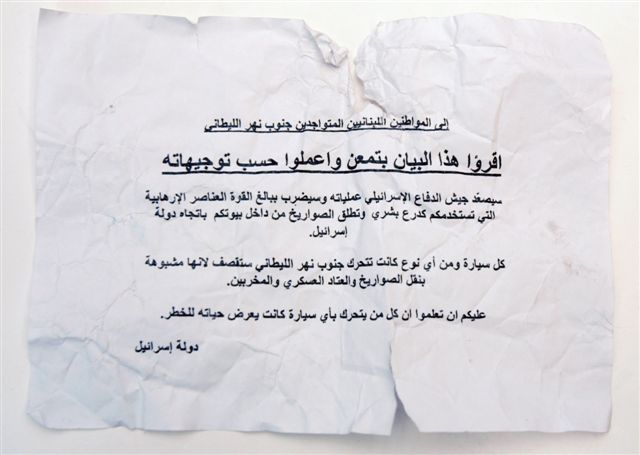 إلى المواطنين اللبنانيين المتواجدين جنوب نهر الليطاني
اقرؤا هذا البيان بتمعن واعملوا حسب توجيهاته
سيصعّد جيش الدفاع الإسرائيلي عملياته وسيضرب ببالغ القوة العناصر الإرهابية
التي تستخدمكم كدرع بشري وتطلق الصواريخ من داخل بيوتكم باتجاه دولة
إسرائيل.
كل سيارة ومن أي نوع كانت تتحرك جنوب نهر الليطاني ستقصف لانها مشبوهة
بنقل الصواريخ والعتاد العسكري والمخربين.
عليكم ان تعلموا ان كل من يتحرك بأي سيارة كانت يعرض حياته للخطر.
دولة إسرائيل